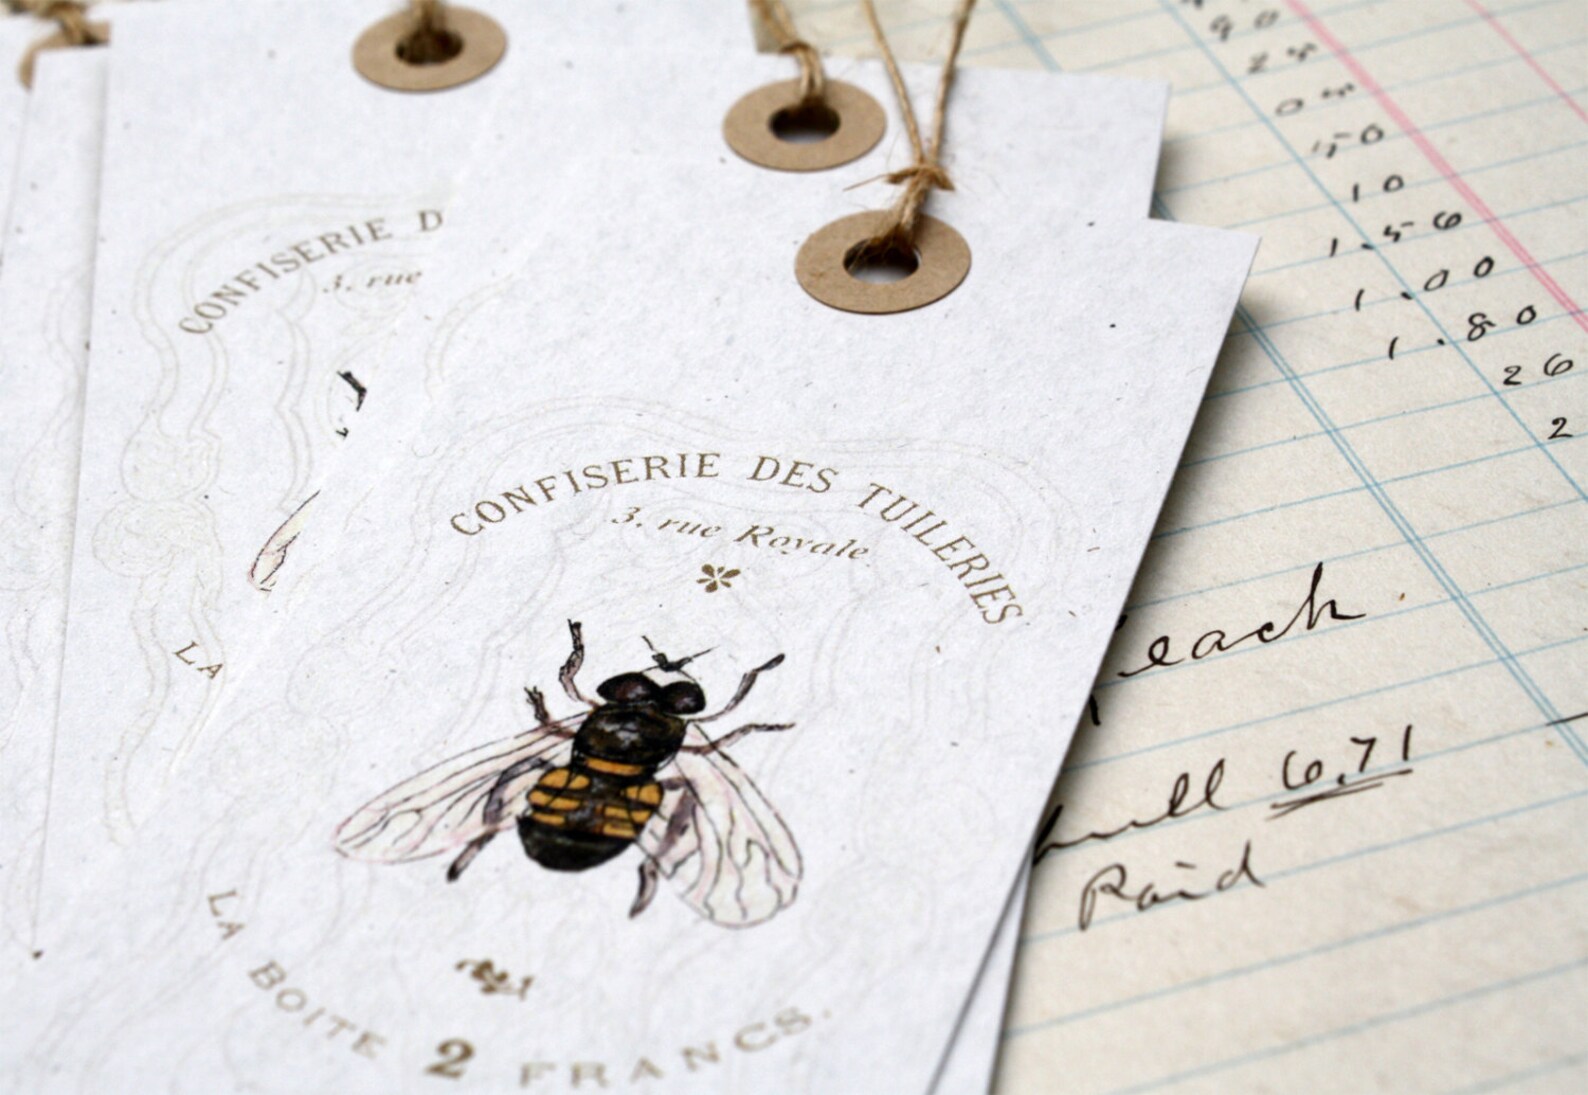 CONFISERIE D
3. rue
LA
CONFISERIE DES TUILERIES
3. rue Royale
LA BOITE 2 FRANCS.
90
25
05
50
10
1.56
1.00
1.80
26
2
each
6.71
Paid